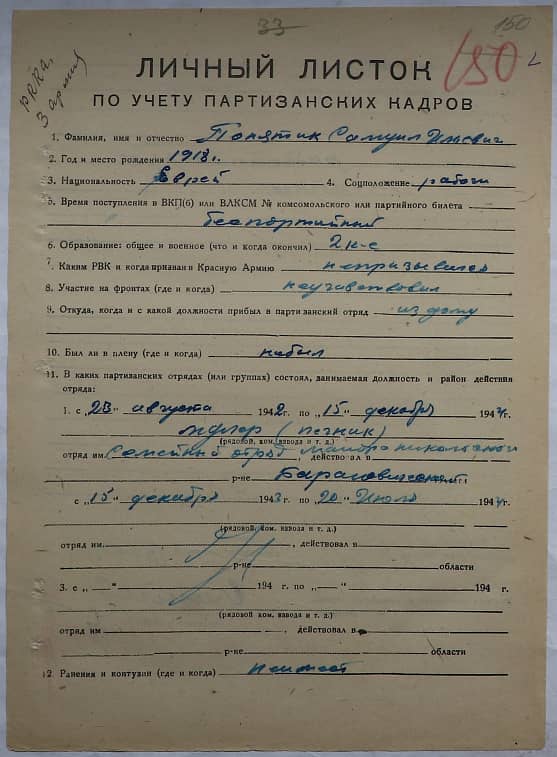 33
150
РККА,
3 армия
150
ЛИЧНЫЙ ЛИСТОК
ПО УЧЕТУ ПАРТИЗАНСКИХ КАДРОВ
1. Фамилия, имя и отчество Понятик Самуил Ильевич
2. Год и место рождения 1918 г.
3. Национальность Еврей 4. Соцположение рабочи
5. Время поступления в ВКП(б) или ВЛКСМ № комсомольского или партийного билета
беспортийный
6. Образование: общее и военное (что и когда окончил) 2 к-с
7. Каким РВК и когда призван в Красную Армию непризывался
8. Участие на фронтах (где и когда) неучавствовал
9. Откуда, когда и с какой должности прибыл в партизанский отряд из дому
10. Был ли в плену (где и когда) небыл
11. В каких партизанских отрядах (или группах) состоял, занимаемая должность и район действия
отряда:
1. с „23“ августа 1942г. по „15“ декабря 194 г.
(печник)
(рядовой, ком. взвода и т. д.)
отряд им Семейный отряд , действовал в
р-не
с „15“ декабря 194 г. по „20“ Июля 194 г.
(рядовой, ком. взвода и т. д.)
отряд им. , действовал в
р-не области
3. с „ “ 194 г. по „ “ 194 г.
(рядовой, ком. взвода и т. д.)
отряд им , действовал в
р-не области
12. Ранения и контузии (где и когда) неимеет